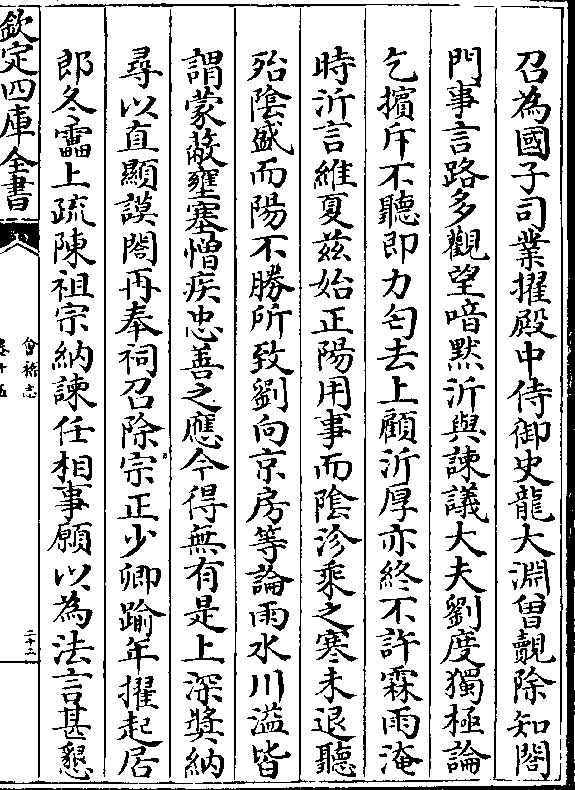 召為國子司業擢殿中侍御史龍大淵曾覿除知閤
門事言路多觀望喑默沂與諫議大夫劉度獨極論
乞擯斥不聽即力匄去上顧沂厚亦終不許霖雨淹
時沂言維夏茲始正陽用事而陰沴乘之寒未退聽
殆陰盛而陽不勝所致劉向京房等論雨水川溢皆
謂蒙蔽壅塞憎疾忠善之應今得無有是上深奬納
尋以直顯謨閣再奉祠召除宗正少卿踰年擢起居
郎冬靁上疏陳祖宗納諫任相事願以為法言甚懇
欽定四庫全書
會稽志
卷十五
二十二